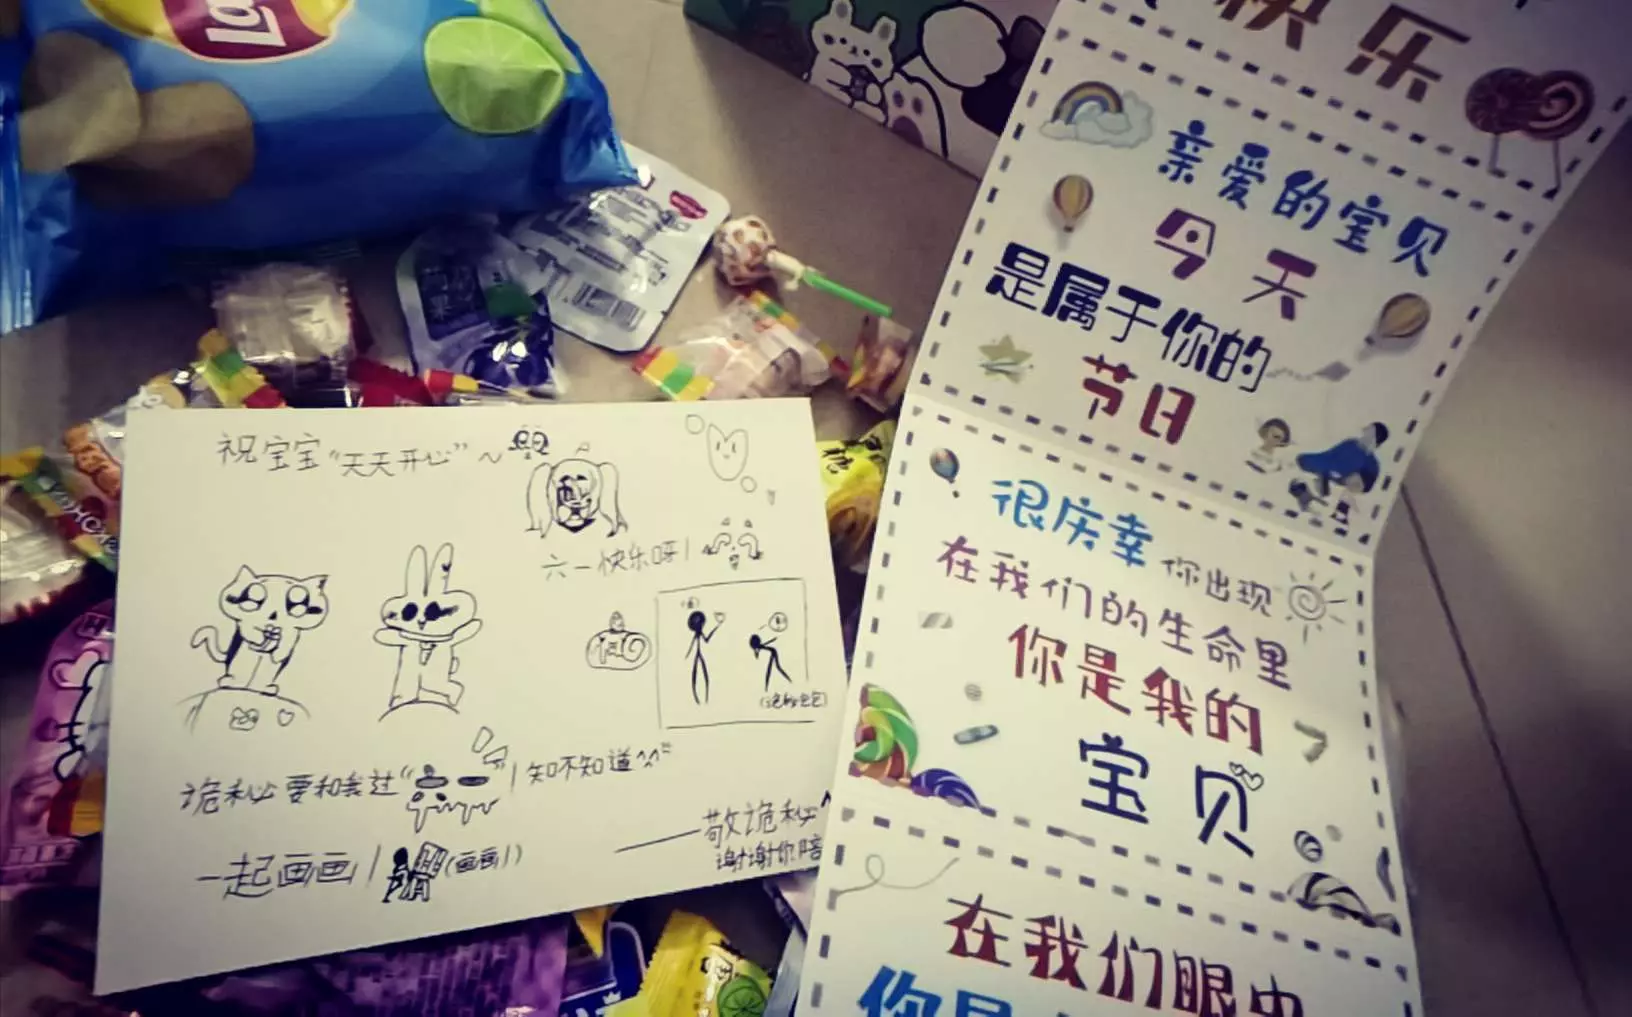 快乐
亲爱的宝贝
今天
是属于你的
节日
很庆幸 你出现
在我们的生命里
你是我的
宝贝
在我们眼中
你是
祝宝宝“天天开心”～
六一快乐呀！
诡秘要和我过“
”！知不知道^^
一起画画！
(画画！)
——敬诡秘
谢谢你陪